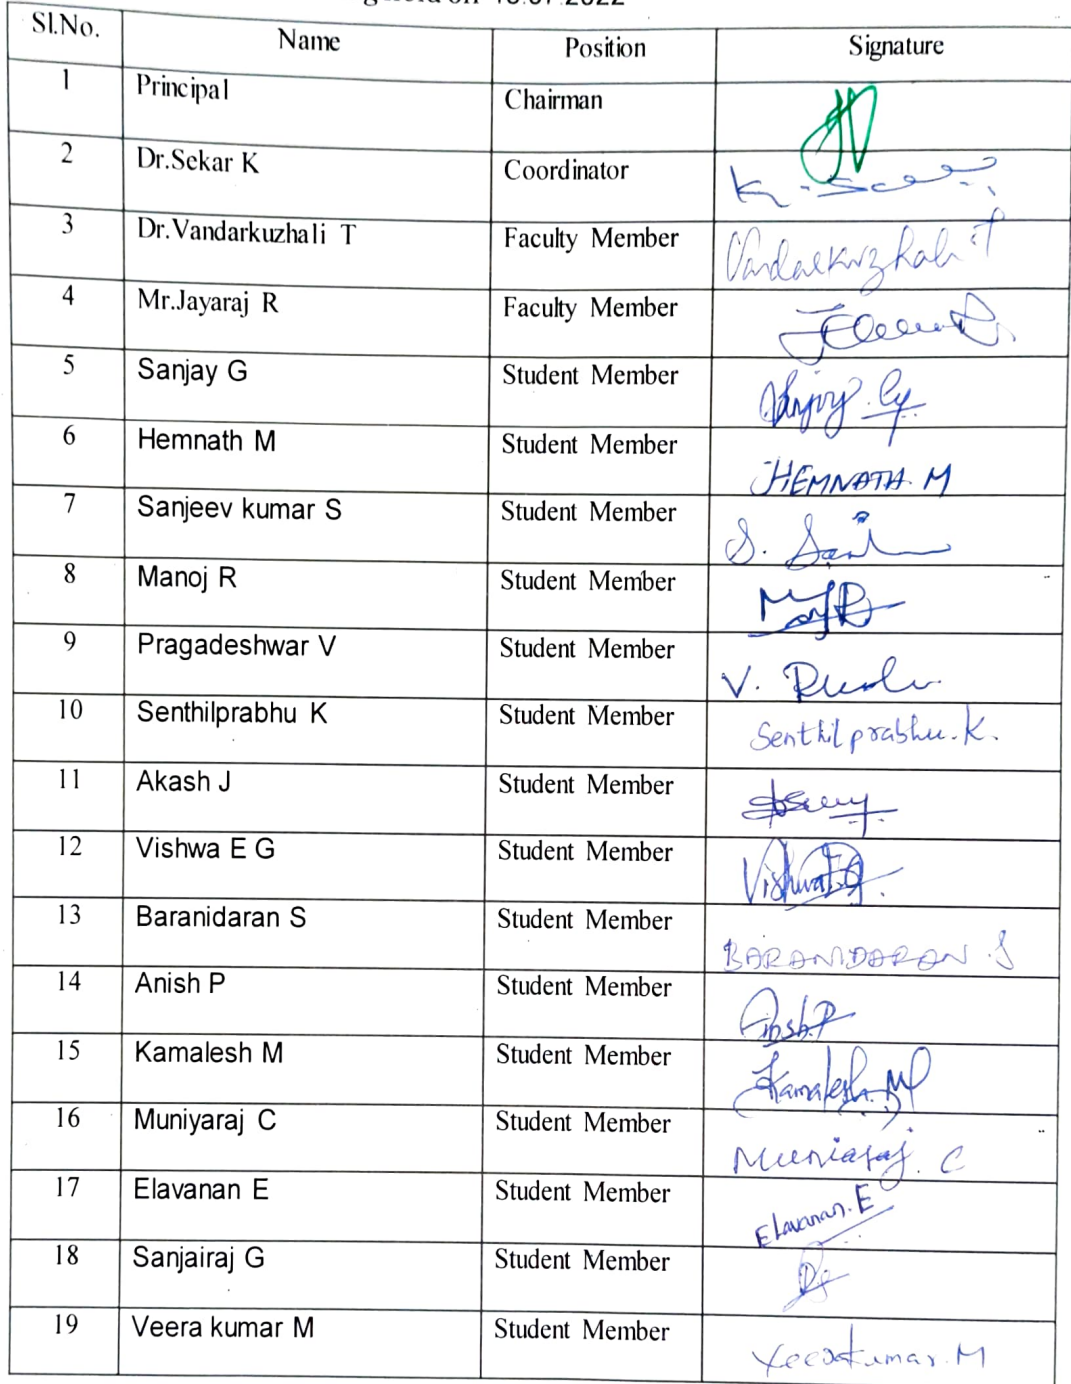 Sl.No. Name Position Signature
1 Principal Chairman
2 Dr.Sekar K Coordinator K.
3 Dr.Vandarkuzhali T Faculty Member Vandarkuzhali T
4 Mr.Jayaraj R Faculty Member
5 Sanjay G Student Member Sanjay. G
6 Hemnath M Student Member HEMNATH. M
7 Sanjeev kumar S Student Member S.
8 Manoj R Student Member
9 Pragadeshwar V Student Member V.
10 Senthilprabhu K Student Member Senthilprabhu. K.
11 Akash J Student Member
12 Vishwa E G Student Member Vishwa E G.
13 Baranidaran S Student Member BARANIDARAN . S
14 Anish P Student Member Anish.P
15 Kamalesh M Student Member Kamalesh. M
16 Muniyaraj C Student Member Muniaraj. C
17 Elavanan E Student Member Elavanan. E
18 Sanjairaj G Student Member
19 Veera kumar M Student Member Veerakumar. M